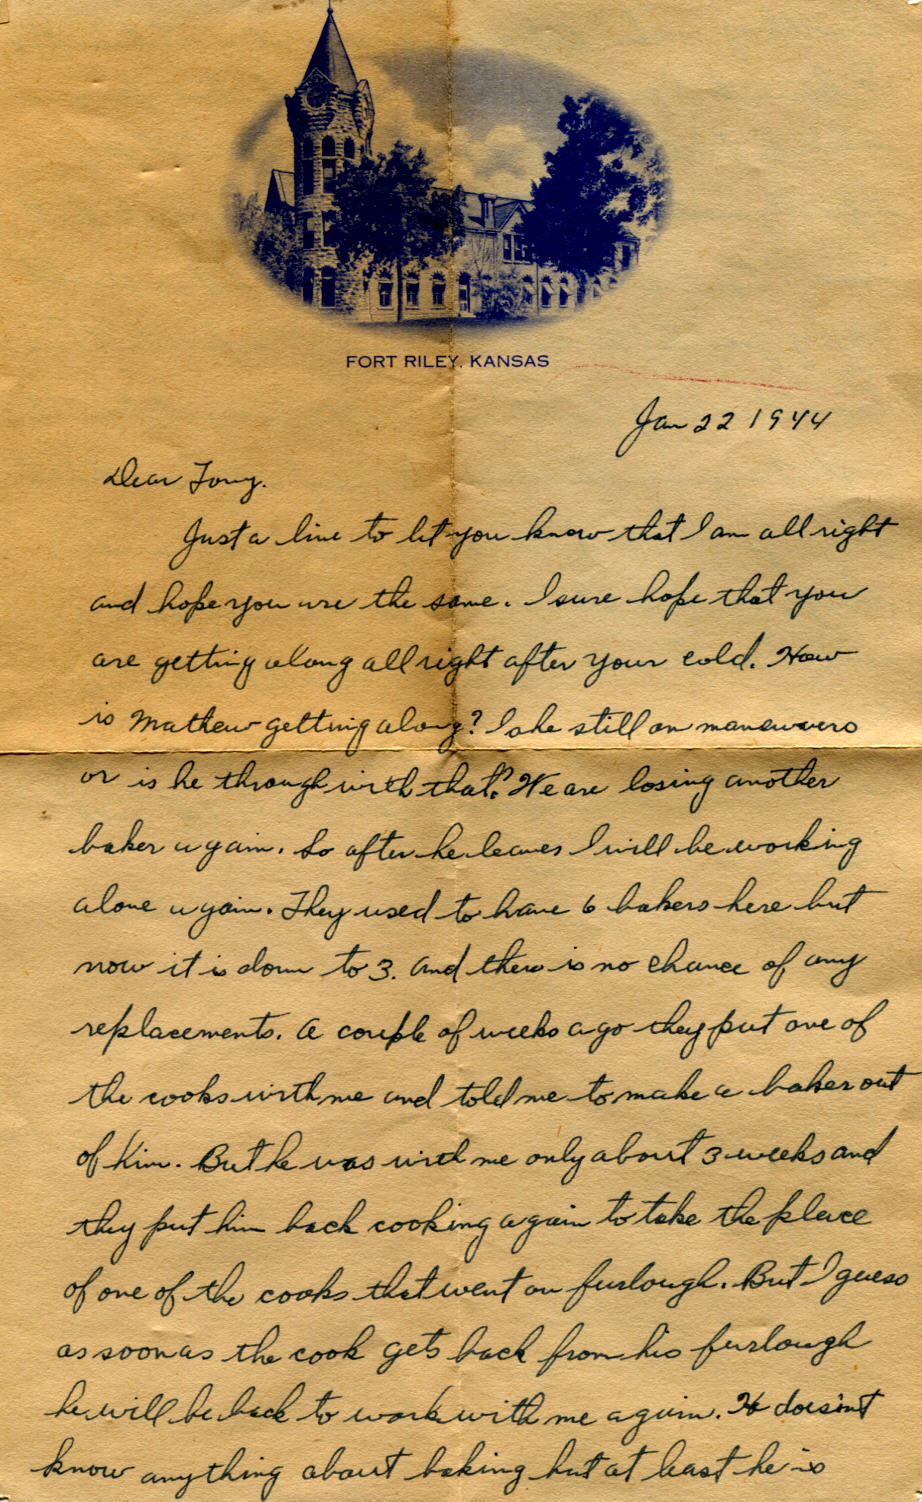 FORT RILEY, KANSAS
Jan 22 1944
Dear Tony.
Just a line to let you know that I am all right
and hope you are the same. I sure hope that you
are getting along all right after your cold. How
is Mathew getting along? Is he still on manewvers
or is he through with that? We are losing another
baker again. So after he leaves I will be working
alone again. They used to have 6 bakers here but
now it is down to 3. and there is no chance of any
replacements. A couple of weeks ago they put one of
the cooks with me and told me to make a baker out
of him. But he was with me only about 3 weeks and
they put him back cooking again to take the place
of one of the cooks that went on furlough. But I guess
as soon as the cook gets back from his furlough
he will be back to work with me again. He doesn't
know anything about baking but at least he is